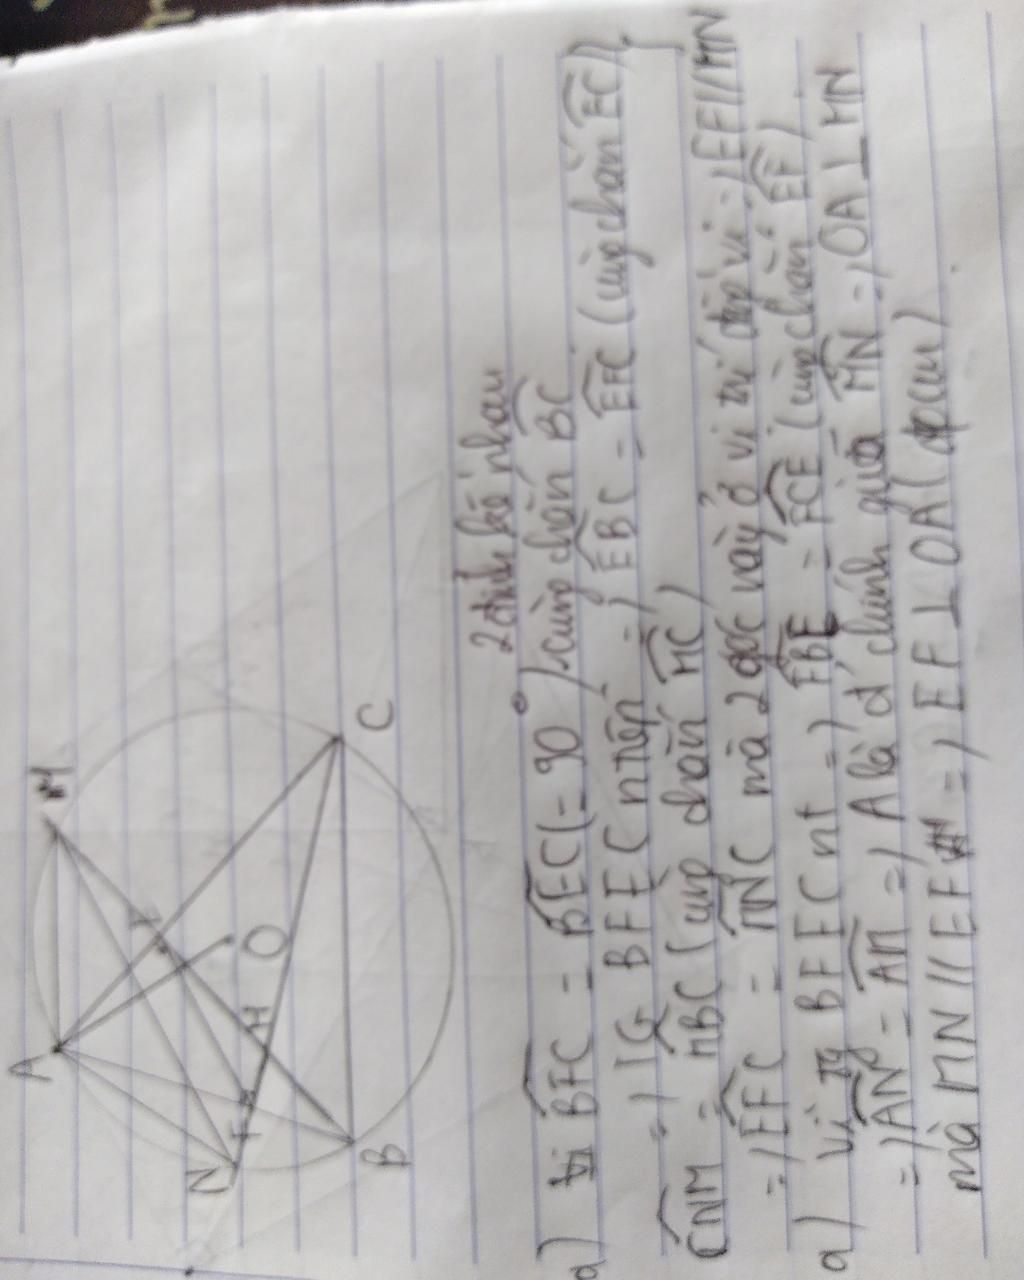 A
M
N
E
F
H
O
B
C
2 đỉnh kề nhau
a) Vì BFC = BEC (= 90°) cùng chắn BC
=> TG BFEC nt nên => EBC = EFC (cùng chắn EC)
CNM = MBC (cùng chắn MC)
=> EFC = MNC mà 2 góc này ở vị trí đồng vị => EF // MN
a) Vì TG BFEC nt => FBE = FCE (cùng chắn EF)
=> AN = AM => A là đ' chính giữa MN => OA ⊥ MN
mà MN // EF => EF ⊥ OA (đpcm)